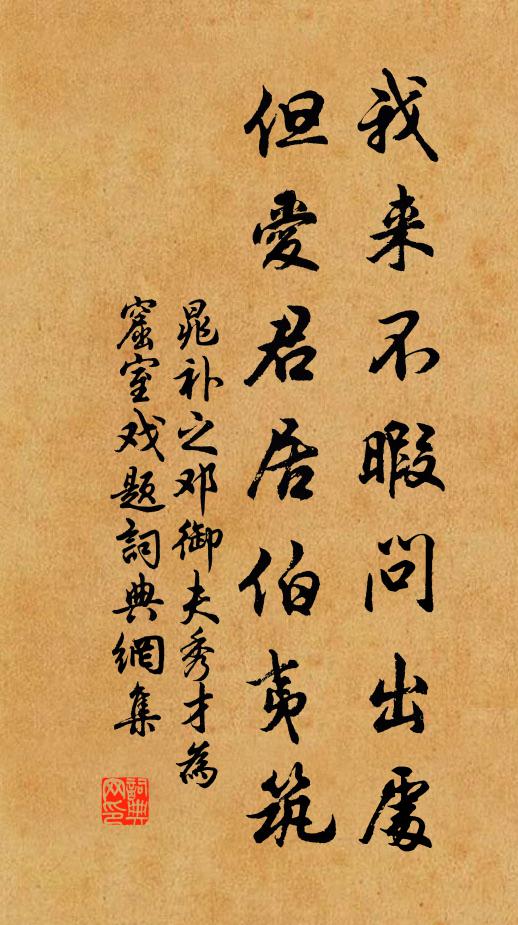 我来不暇問出處
但愛君居伯夷筑
晁补之邓御夫秀才為
窟室戏題詞典網集
詞典网印